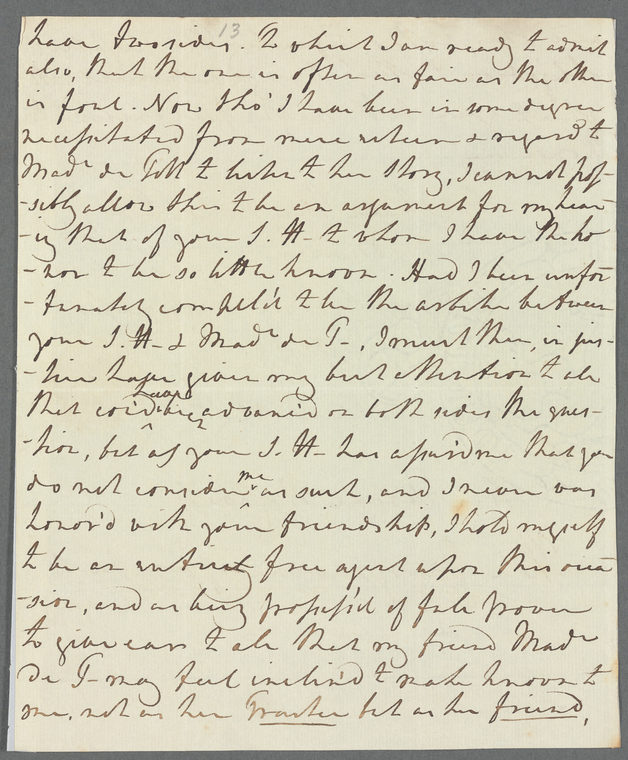 13
have two sides. To which I am ready to admit
also, that the one is often as fair as the other
is foul. Now tho' I have been in some degree
necessitated from mere esteem & regard to
Made de Tott to listen to her story, I cannot pos-
-sibly allow this to be an argument for my hear-
-ing that of your S. H- to whom I have the ho
-nor to be so little known. Had I been unfor
-tunately compel'd to be the arbiter between
your S. H- & Made de T-, I must then, in jus-
-tice have given my best attention to all
that cou'd have been advanc'd on both sides the ques-
-tion, but as your S. H- has assur'd me that you
do not consider me as such, and I never was
honor'd with your friendship, I hold myself
to be an entirely free agent upon this occa
-sion, and as being possess'd of full power
to give ears to all that my friend Made
de T- may feel inclin'd to make known to
me, not as her but as her friend,